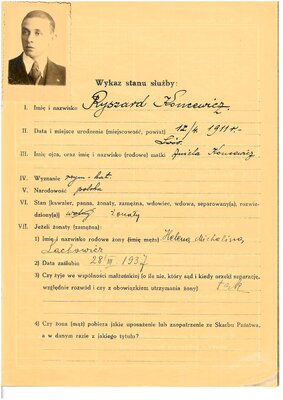 Wykaz stanu służby:
I. Imię i nazwisko Ryszard Koncewicz
II. Data i miejsce urodzenia (miejscowość, powiat) 12/4 1911 r.
Lwów
III. Imię ojca, oraz imię i nazwisko (rodowe) matki Aniela Koncewicz
IV. Wyznanie rzym-kat.
V. Narodowość polska
VI. Stan (kawaler, panna, żonaty, zamężna, wdowiec, wdowa, separowana(y), rozwie-
dziony(a)) wolny żonaty
VII. Jeżeli żonaty (zamężna):
1) Imię i nazwisko rodowe żony (imię męża) Helena Michalina
Lachowicz
2) Data zaślubin 28 III 1937
3) Czy żyje we wspólności małżeńskiej (o ile nie, który sąd i kiedy orzekł separację,
względnie rozwód i czy z obowiązkiem utrzymania żony) tak
4) Czy żona (mąż) pobiera jakie uposażenie lub zaopatrzenie ze Skarbu Państwa,
a w danym razie z jakiego tytułu?